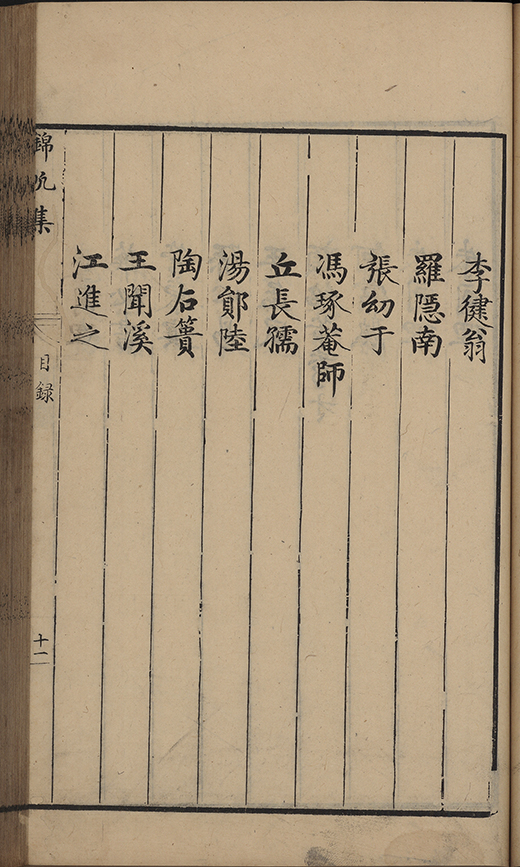 李徤翁
羅隱南
張幼于
馮琢菴師
丘長孺
湯鄖陸
陶石簣
王聞溪
江進之
錦帆集
目録
十二